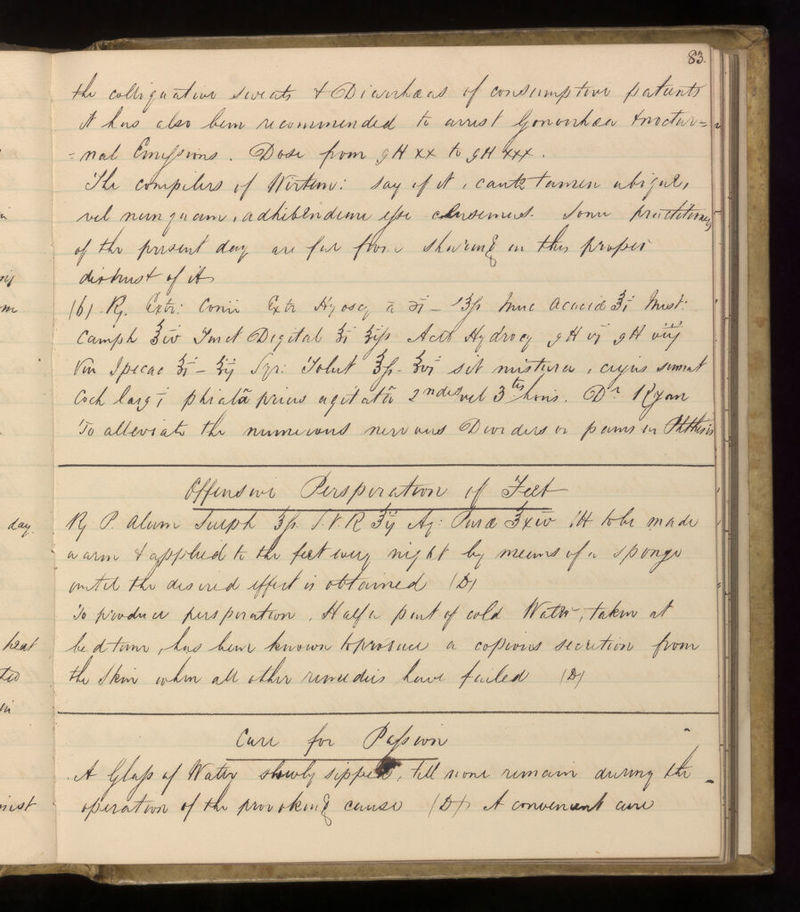 83.
the colliquative sweats & Diarrhœas of consumptive patients
it has also been recommended to arrest Gonorrhœa & noctur=
=nal Emissions. Dose from gtt xx to gtt xxx.
The compilers of Wirtem: say of it, caute tamen
vel nunquam, adhibendum esse censemus. Some practitioners
of the present day are far from sharing in this proper
distrust of it
(6) Rx. Extr: Conii Extr Hyoscy a ʒi – ʒß Muc Acaciæ ℥i Mist:
Camph ℥iv Tinct Digital ʒi ʒiß Acid Hydrocy gtt vi gtt viij
Vin Ipecac ʒi – ʒij Syr: Tolut ℥ß - ʒvi sit mistura, cujus sumat
Coch larg i phialâ prius agitatâ 2ndis vel 3tis horis. Dr Ryan
To alleviate the numerous nervous Disorders or pains in Phthisis
Offensive Persperation of Feet
Rx P. Alum Sulph ʒß S.V.R ʒij Aq: Puræ ℥xiv M to be made
warm & applied to the feet every night by means of a sponge
until the desired effect is obtained (D)
To produce persperation, Half a pint of cold Water, taken at
bedtime, has been known to produce a copious secretion from
the Skin when all other remedies have failed (D)
Cure for Passion
A Glass of Water slowly sipped, till none remain during the
operation of the provoking cause (D) A convenient cure
day.
heat